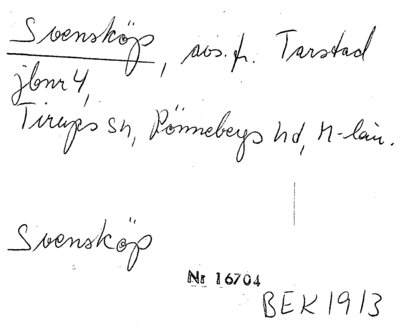 Svensköp, avs. fr. Tarstad
jbnr 4,
Tirups sn, Rönnebergs hd, M-län.
Svensköp
Nr 16704
BEK 1913